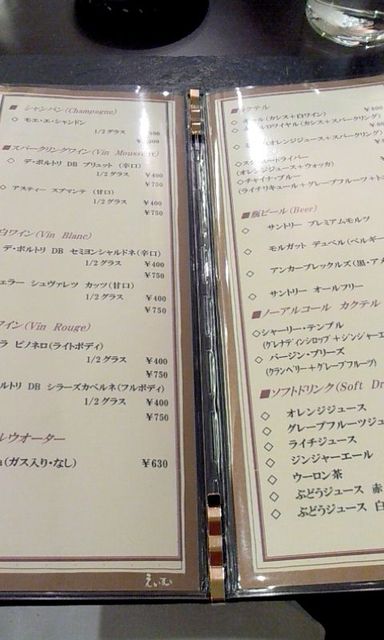 ■ シャンパン(Champagne)
◇ モエ・エ・シャンドン
1/2グラス
■スパークリングワイン(Vin Mousseux)
◇ デ・ボルトリ DB ブリュット(辛口)
1/2グラス ¥400
¥750
◇ アスティー スプマンテ (甘口)
1/2グラス ¥400
¥750
白ワイン(Vin Blanc)
デ・ボルトリ DB セミヨンシャルドネ(辛口)
1/2グラス ¥400
¥750
ェラー シュヴァルツ カッツ(甘口)
1/2グラス ¥400
¥750
ワイン(Vin Rouge)
ラ ピノネロ(ライトボディ)
1/2グラス ¥400
¥750
ルトリ DB シラーズカベルネ(フルボディ)
1/2グラス ¥400
¥750
ルウオーター
(ガス入り・なし) ¥630
えいむ
カクテル
◇ キール(カシス+白ワイン)
ロワイヤル(カシス+スパーク
(オレンジジュース+スパークリング
スクリュードライバー
(オレンジジュース+ウォッカ)
◇ チャイナ・ブルー
(ライチリキュール+グレープフルーツ+ト
■瓶ビール(Beer)
◇ サントリー プレミアムモルツ
◇ モルガット デュベル(ベルギー
◇ アンカーブレックルズ(黒・アメ
◇ サントリー オールフリー
■ノーアルコール カクテル
◇シャーリー・テンプル
(グレナデインシロップ+ジンジャーエ
◇ バージン・ブリーズ
(クランベリー+グレープフルーツ)
■ソフトドリンク(Soft Dr
◇ オレンジジュース
◇ グレープフルーツジュ
◇ ライチジュース
◇ ジンジャーエール
◇ ウーロン茶
◇ ぶどうジュース 赤
◇ ぶどうジュース 白